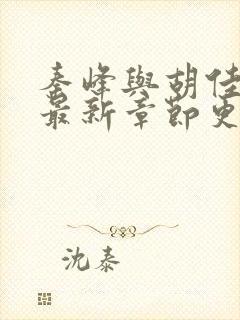 秦峰與胡佳
最新章節更
沈泰